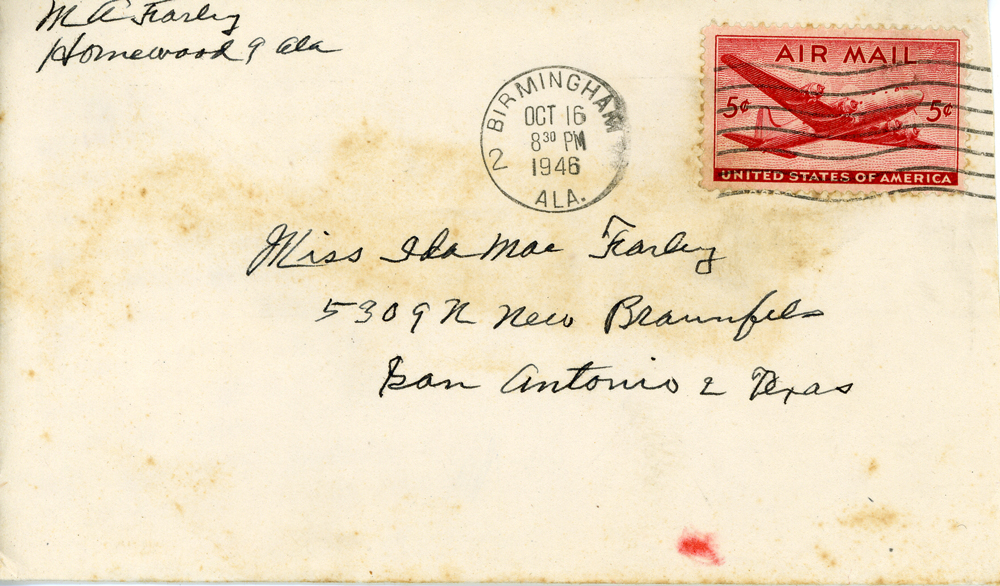 M A Farley
Homewood 9 Ala
BIRMINGHAM
OCT 16
8 30 PM
1946
2
ALA.
AIR MAIL
5¢ 5¢
UNITED STATES OF AMERICA
Miss Ida Mae Farley
5309 N New Braunfels
San Antonio 2 Texas